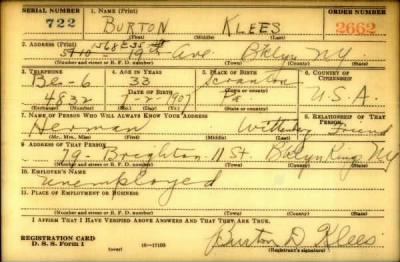 SERIAL NUMBER 1. NAME (Print) ORDER NUMBER
722 BURTON KLEES 2662
(First) (Middle) (Last)
568 E 35 St
2. ADDRESS (Print)
19th Ave Bklyn N.Y.
(Number and street or R. F. D. number) (Town) (County) (State)
3. TELEPHONE 4. AGE IN YEARS 5. PLACE OF BIRTH 6. COUNTRY OF CITIZENSHIP
Be-6 33 Scranton
DATE OF BIRTH (Town or county)
4832 7-2-1907 Pa U.S.A.
(Exchange) (Number) (Mo.) (Day) (Yr.) (State or country)
7. NAME OF PERSON WHO WILL ALWAYS KNOW YOUR ADDRESS 8. RELATIONSHIP OF THAT PERSON
Herman Friend
(Mr., Mrs., Miss) (First) (Middle) (Last)
9. ADDRESS OF THAT PERSON
79- Brighton 11 St Bklyn Kings N.Y.
(Number and street or R. F. D. number) (Town) (County) (State)
10. EMPLOYER'S NAME
Unemployed
11. PLACE OF EMPLOYMENT OR BUSINESS
(Number and street or R. F. D. number) (Town) (County) (State)
I AFFIRM THAT I HAVE VERIFIED ABOVE ANSWERS AND THAT THEY ARE TRUE.
REGISTRATION CARD
D. S. S. Form 1 (over) 16-17105 Burton D. Klees
(Registrant's signature)